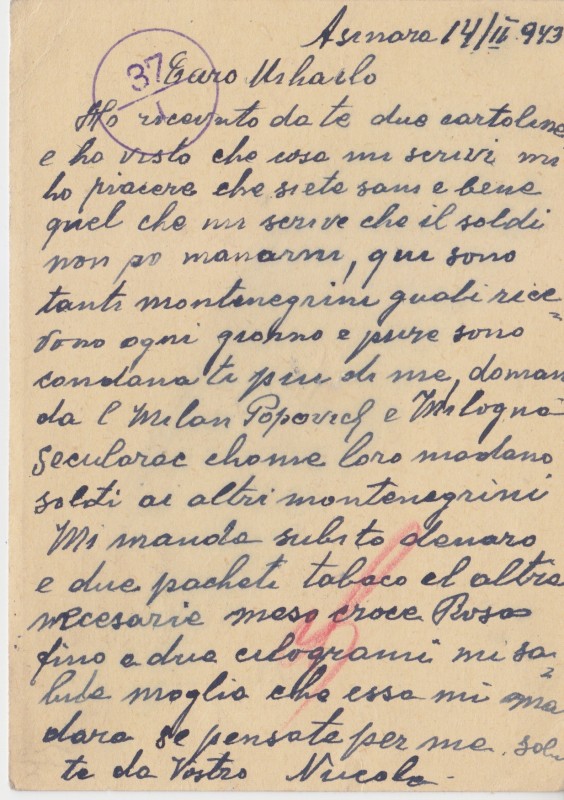 Asinara 14/II 943
37
1
Caro Mihailo
Ho ricevuto da te due cartoline
e ho visto che cosa mi scrivi mi
ho piacere che siete sani e bene
quel che mi scrive che il soldi
non po manarmi, qui sono
tanti montenegrini quali rice=
vono ogni giorno e pure sono
condanati piu di me, doman
da l Milan Popovich e Milogna
Seculorac chome loro madano
soldi ai altri montenegrini
Mi manda subito denaro
e due pacheti tabaco el altre
necesarie meso croce Rosa
fino a due cilogrami mi sa=
luda moglia che essa mi ma=
dara se pensate per me. Solu
te da Vostro Nucola